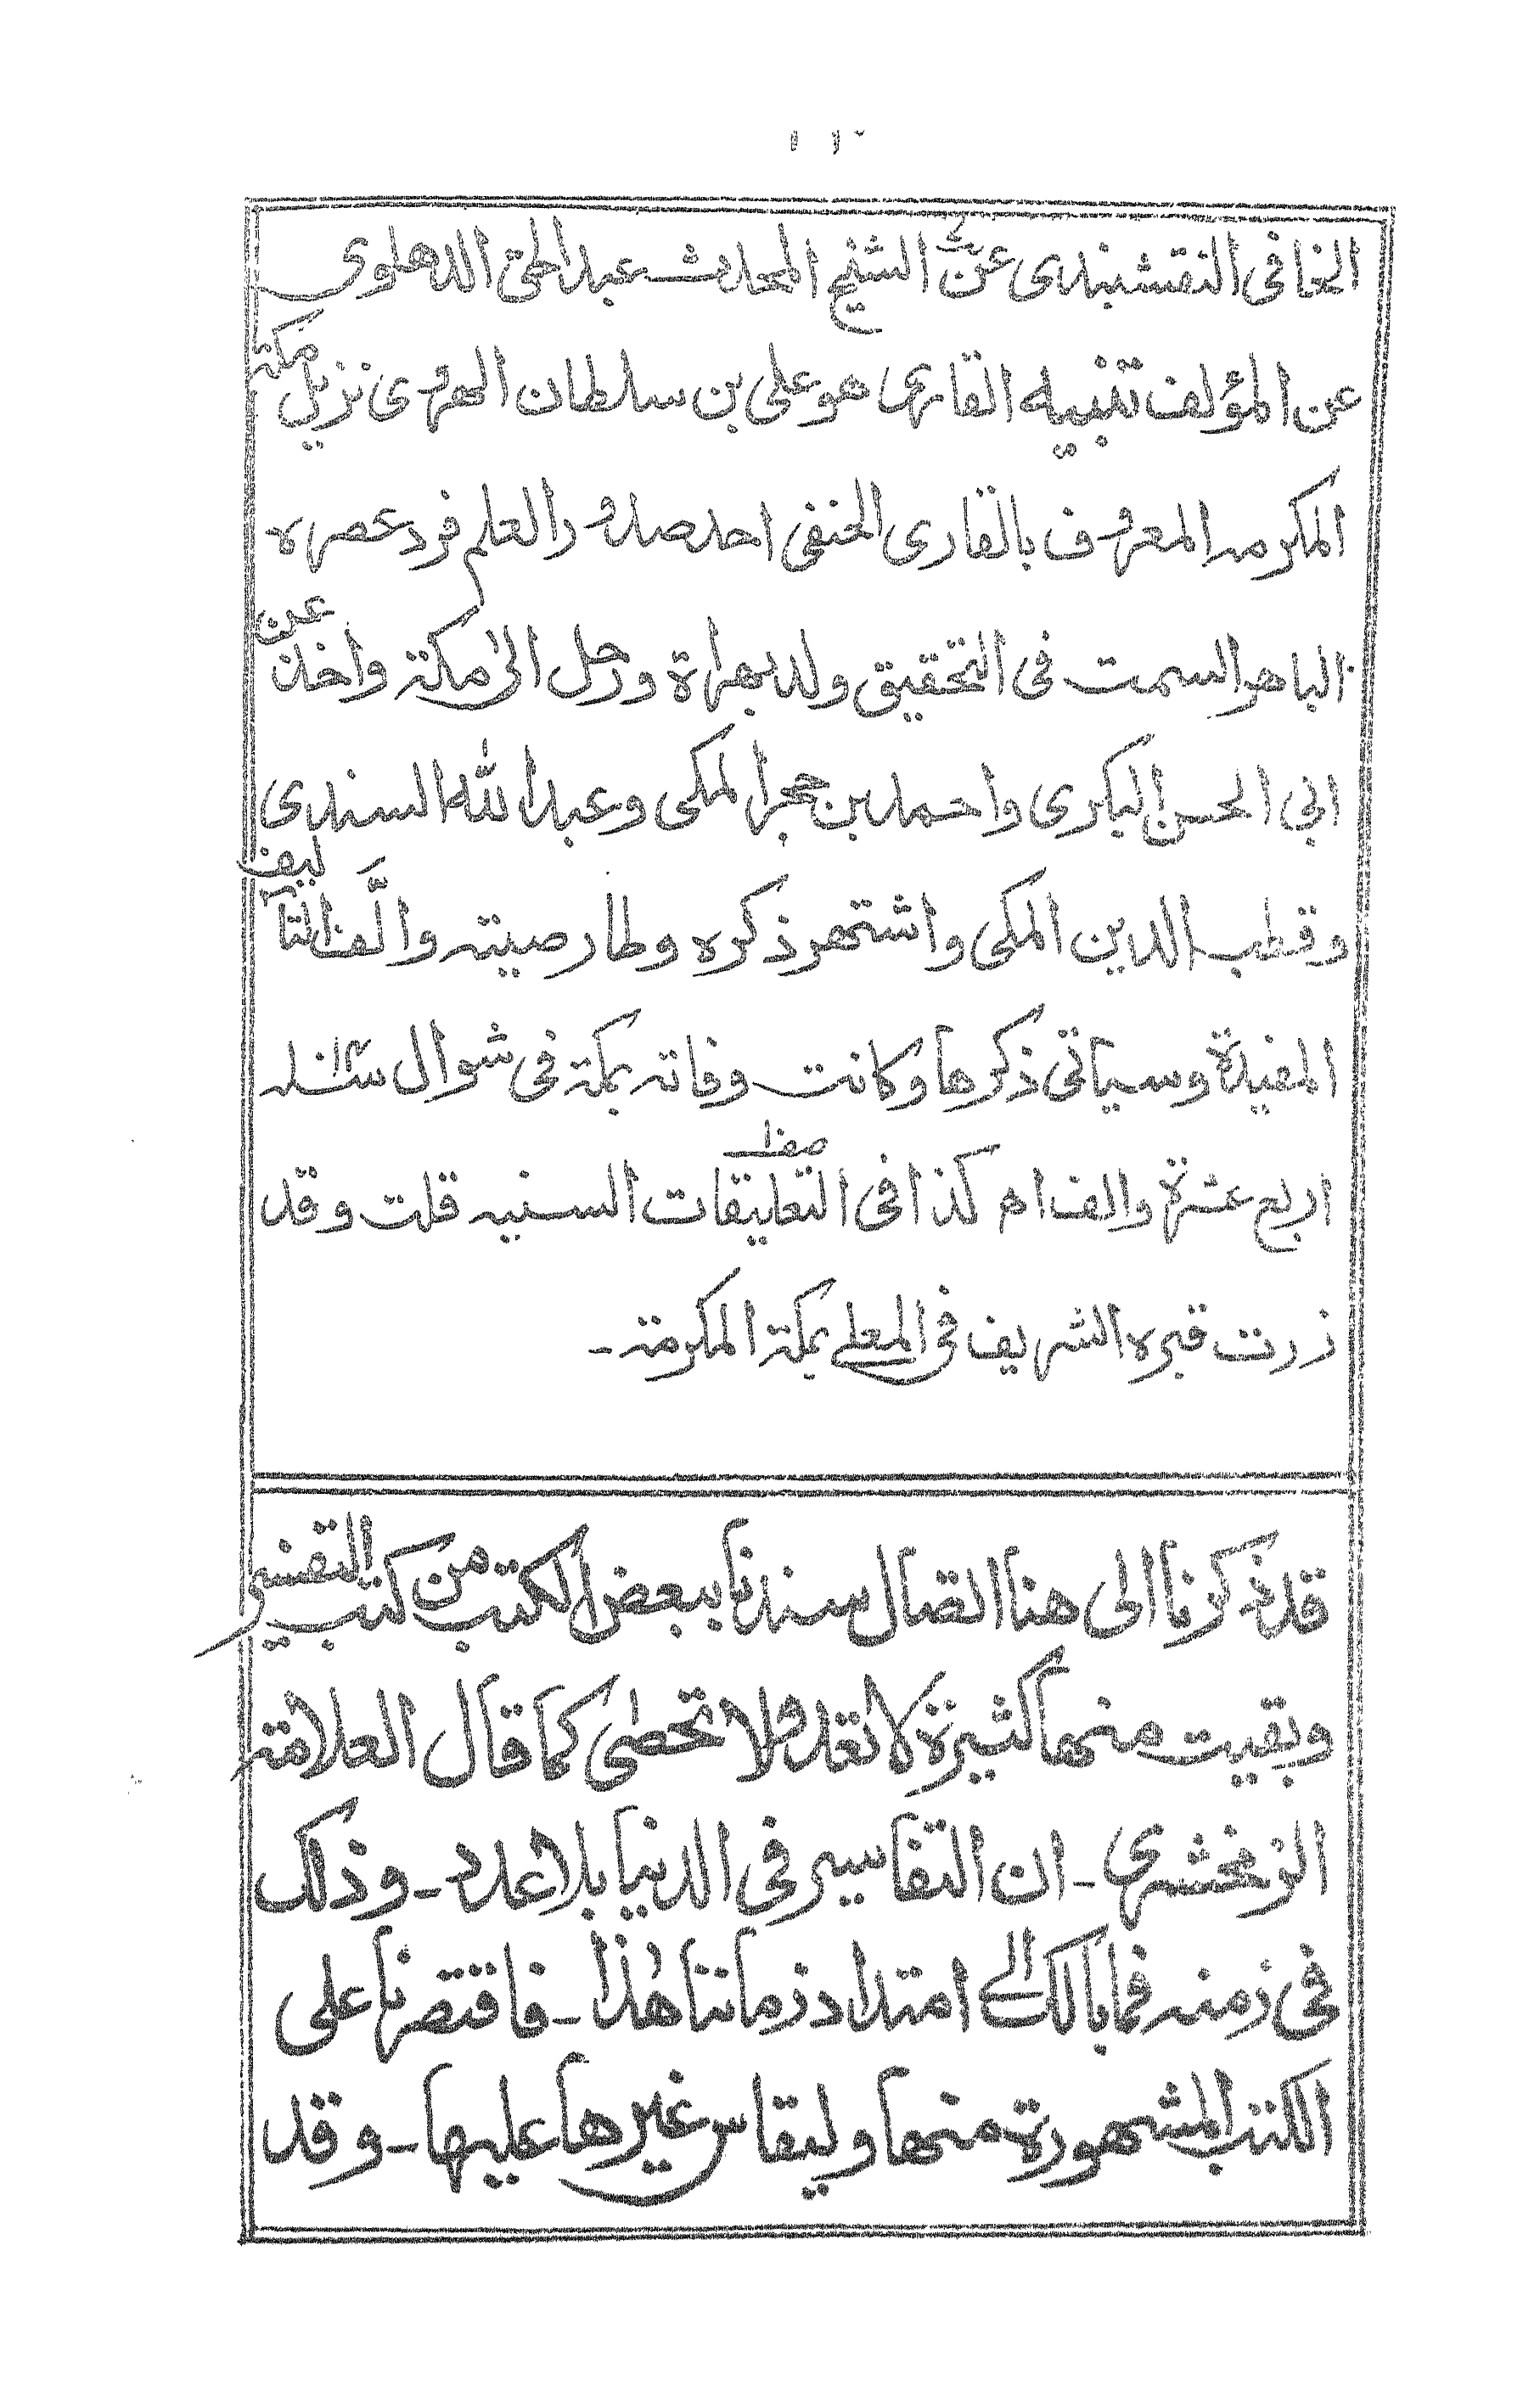 الخافى النقشبندى عن الشيخ المحدث عبد الحق الدهلوى
عن المؤلف تنبيه القارى هو على بن سلطان الهروى نزيل مكة
المكرمه المعروف بالقارى الحنفى احد صدور العلم فرد عصره
الباهر السمت فى التحقيق ولد بهراة ورحل الى مكة واخذ عن
ابى الحسن البكرى واحمد بن حجر المكى وعبد الله السندى
وقطب الدين المكى واشتهر ذكره وطار صيته والَّف التآليف
المفيدة وسياتى ذكرها وكانت وفاته بمكة فى شوال سنه
اربع عشرة والف اه كذا فى التعليقات السنيه قلت وقد
زرت قبره الشريف فى المعلے بمكة المكرمة ـ
قد ذكرنا الى هنا اتصال سندنا ببعض الكتب من كتب التفسير
وبقيت منها كثيرة لا تعد ولا تحصى كما قال العلامة
الزمخشرى ـ ان التفاسير فى الدنيا بلا عدد ـ وذلك
فى زمنه فما بالك الے امتداد زماننا هذا ـ فاقتصرنا على
الكتب المشهورة منها وليقاس غيرها عليها ـ وقد